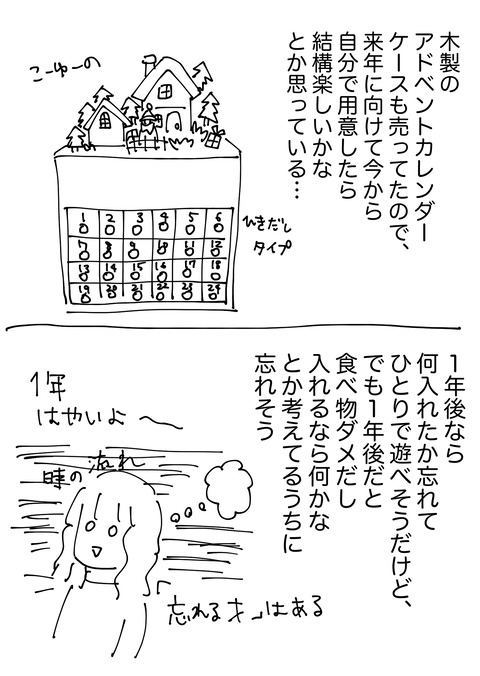 木製の
アドベントカレンダー
ケースも売ってたので、
来年に向けて今から
自分で用意したら
結構楽しいかな
とか思っている…
こーゆーの
1 2 3 4 5 6
7 8 9 10 11 12
13 14 15 16 17 18
19 20 21 22 23 24
ひきだし
タイプ
1年後なら
何入れたか忘れて
ひとりで遊べそうだけど、
でも1年後だと
食べ物ダメだし
入れるなら何かな
とか考えてるうちに
忘れそう
1年
はやいよ〜
時の流れ
忘れる才はある